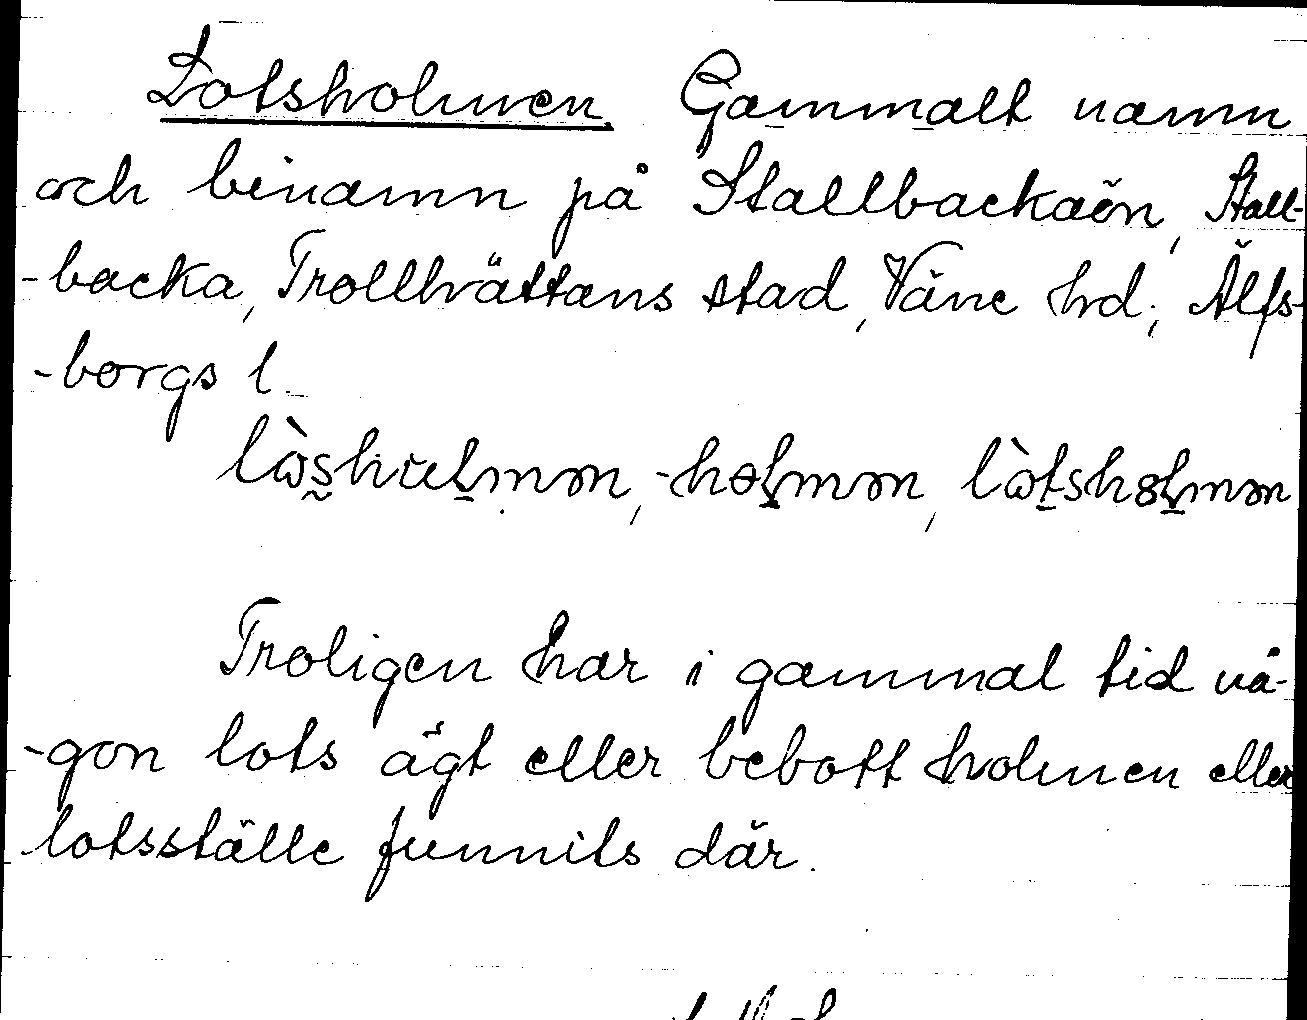 Lotsholmen. Gammalt namn
och binamn på Stallbackaön, Stall-
-backa, Trollhättans stad, Väne hd; Älfs-
-borgs l.
Troligen har i gammal tid nå-
-gon lots ägt eller bebott holmen eller
lotsställe funnits där.